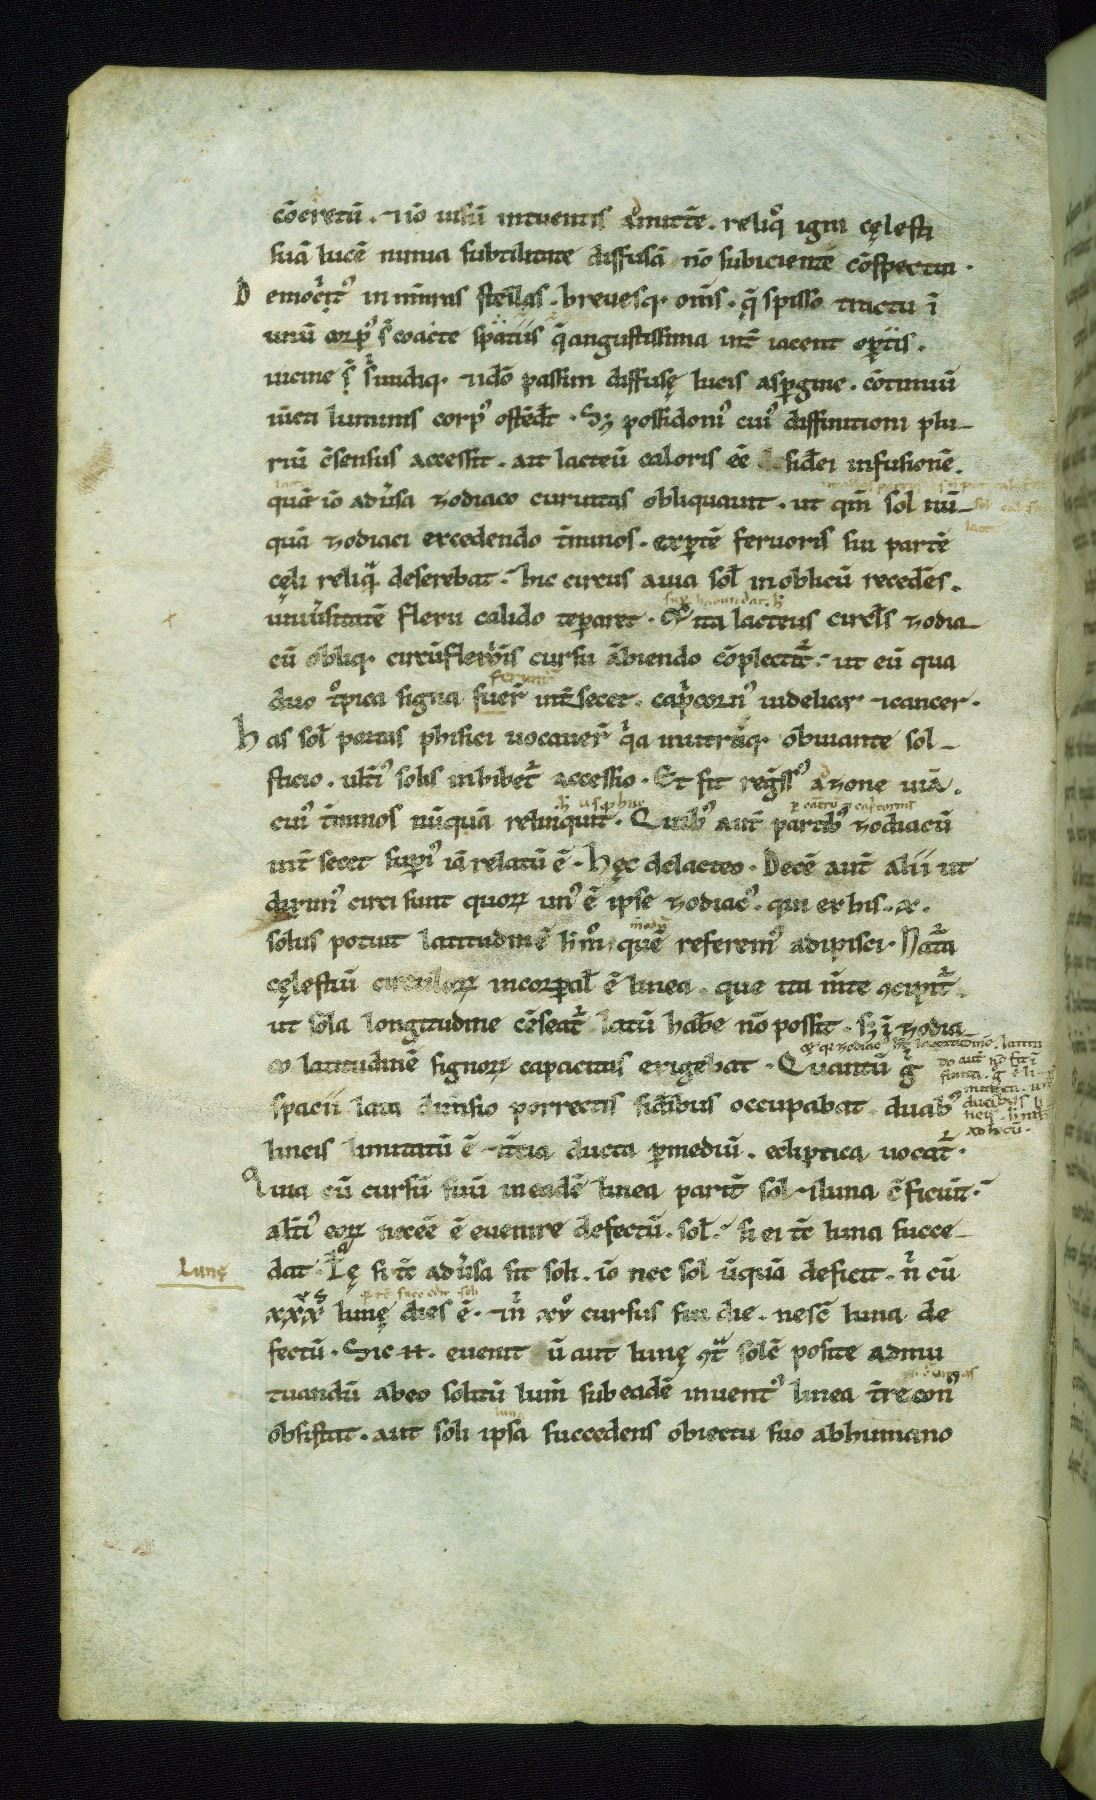 cōcretū. ⁊ nō uisū intuentis amittē. reliqͦ igni cęlesti
suā lucē nimia subtilitate diffusā nō subiciente cōspectui.
Democritꝰ innūmas stellas. breuesq; om̄s. q̄ spisso tractu ī
unū corpꝰ s̄ coacte spatiis q̄ angustissima int̄ iacent optis.
uicine s̄ undiq; ⁊ idō passim diffusę lucis asp̄gine. cōtinuū
iūcti luminis corpꝰ ostēdt̄. Sꝫ possidoniꝰ cuiꝰ diffinitioni plu-
riū c̄sensus accessit. ait lacteū caloris eē siderei infusionē.
quā iō aduersa zodiaco curuitas obliquauit. ut qm̄ sol nū-
quā zodiaci excedendo t̄minos. exptē feruoris sui partē
cęli reliquā deserebat. hic circus a uia sol̄ in oblicū recedēs.
uniuersitatē flexu calido tēparet.
ita lacteus circl̄s zodia-
cū obliq; circūflexiōis cursu ābiendo cōplectit̄. ut eū qua
duo tͦpica signa fuer̄ int̄secet. capicornꝰ uidelicet ⁊ cancer.
has sol̄ portas phisici uocauer̄ qͥa inutraq; obuiante sol-
sticio. ultꝰ solis inhibet̄ accessio. Et fit regssꝰ ad zone uiā.
cuiꝰ t̄minos nūquā relinquit. Quibꝰ aut̄ partibꝰ zodiacū
int̄secet supiꝰ iā relatū ē. hęc de lacteo. Decē aut̄ alii ut
diximꝰ circi sunt quoꝝ unꝰ ē ipse zodiacꝰ. qui ex his .x.
solus potuit latitudinē h̄ mͦ quē referemꝰ adipisci. Natᵃ
cęlestiū circuloꝝ incorpal̄ ē linea. que ita m̄te ꝯcipit̄.
ut sola longitudine cēseat̄ latū habe nō possit. sꝫ ī zodia-
co latitudinē signoꝝ capacitas exigebat. Quantū g̊
spacii lata dim̄sio porrectis sidibus occupabat. duabꝰ
lineis limitatū ē ⁊ t̄cia ducta p mediū. ecliptica uocat̄.
Quia cū cursū suū in eadē linea parit̄ sol ⁊ luna cficiūt.
altiꝰ eoꝝ necēe ē euenire defectū. sol̄. si ei tc̄ luna succe-
Lunę
dat. Lę si tc̄ aduersa sit soli. iō nec sol ūquā deficit. n̄ cū
xxx lunę dies ē. ⁊ n̄ xvͦ cursus sui die. nesc̄ luna de
fectū. Sic .n. euenit ū aut lunę ꝯtᵃ solē posite admu
tuandū ab eo solitū lum̄ sub eadē inuentꝰ linea t̄re con̄
luna
obsistat. aut soli ipsa succedens obiectu suo ab humano